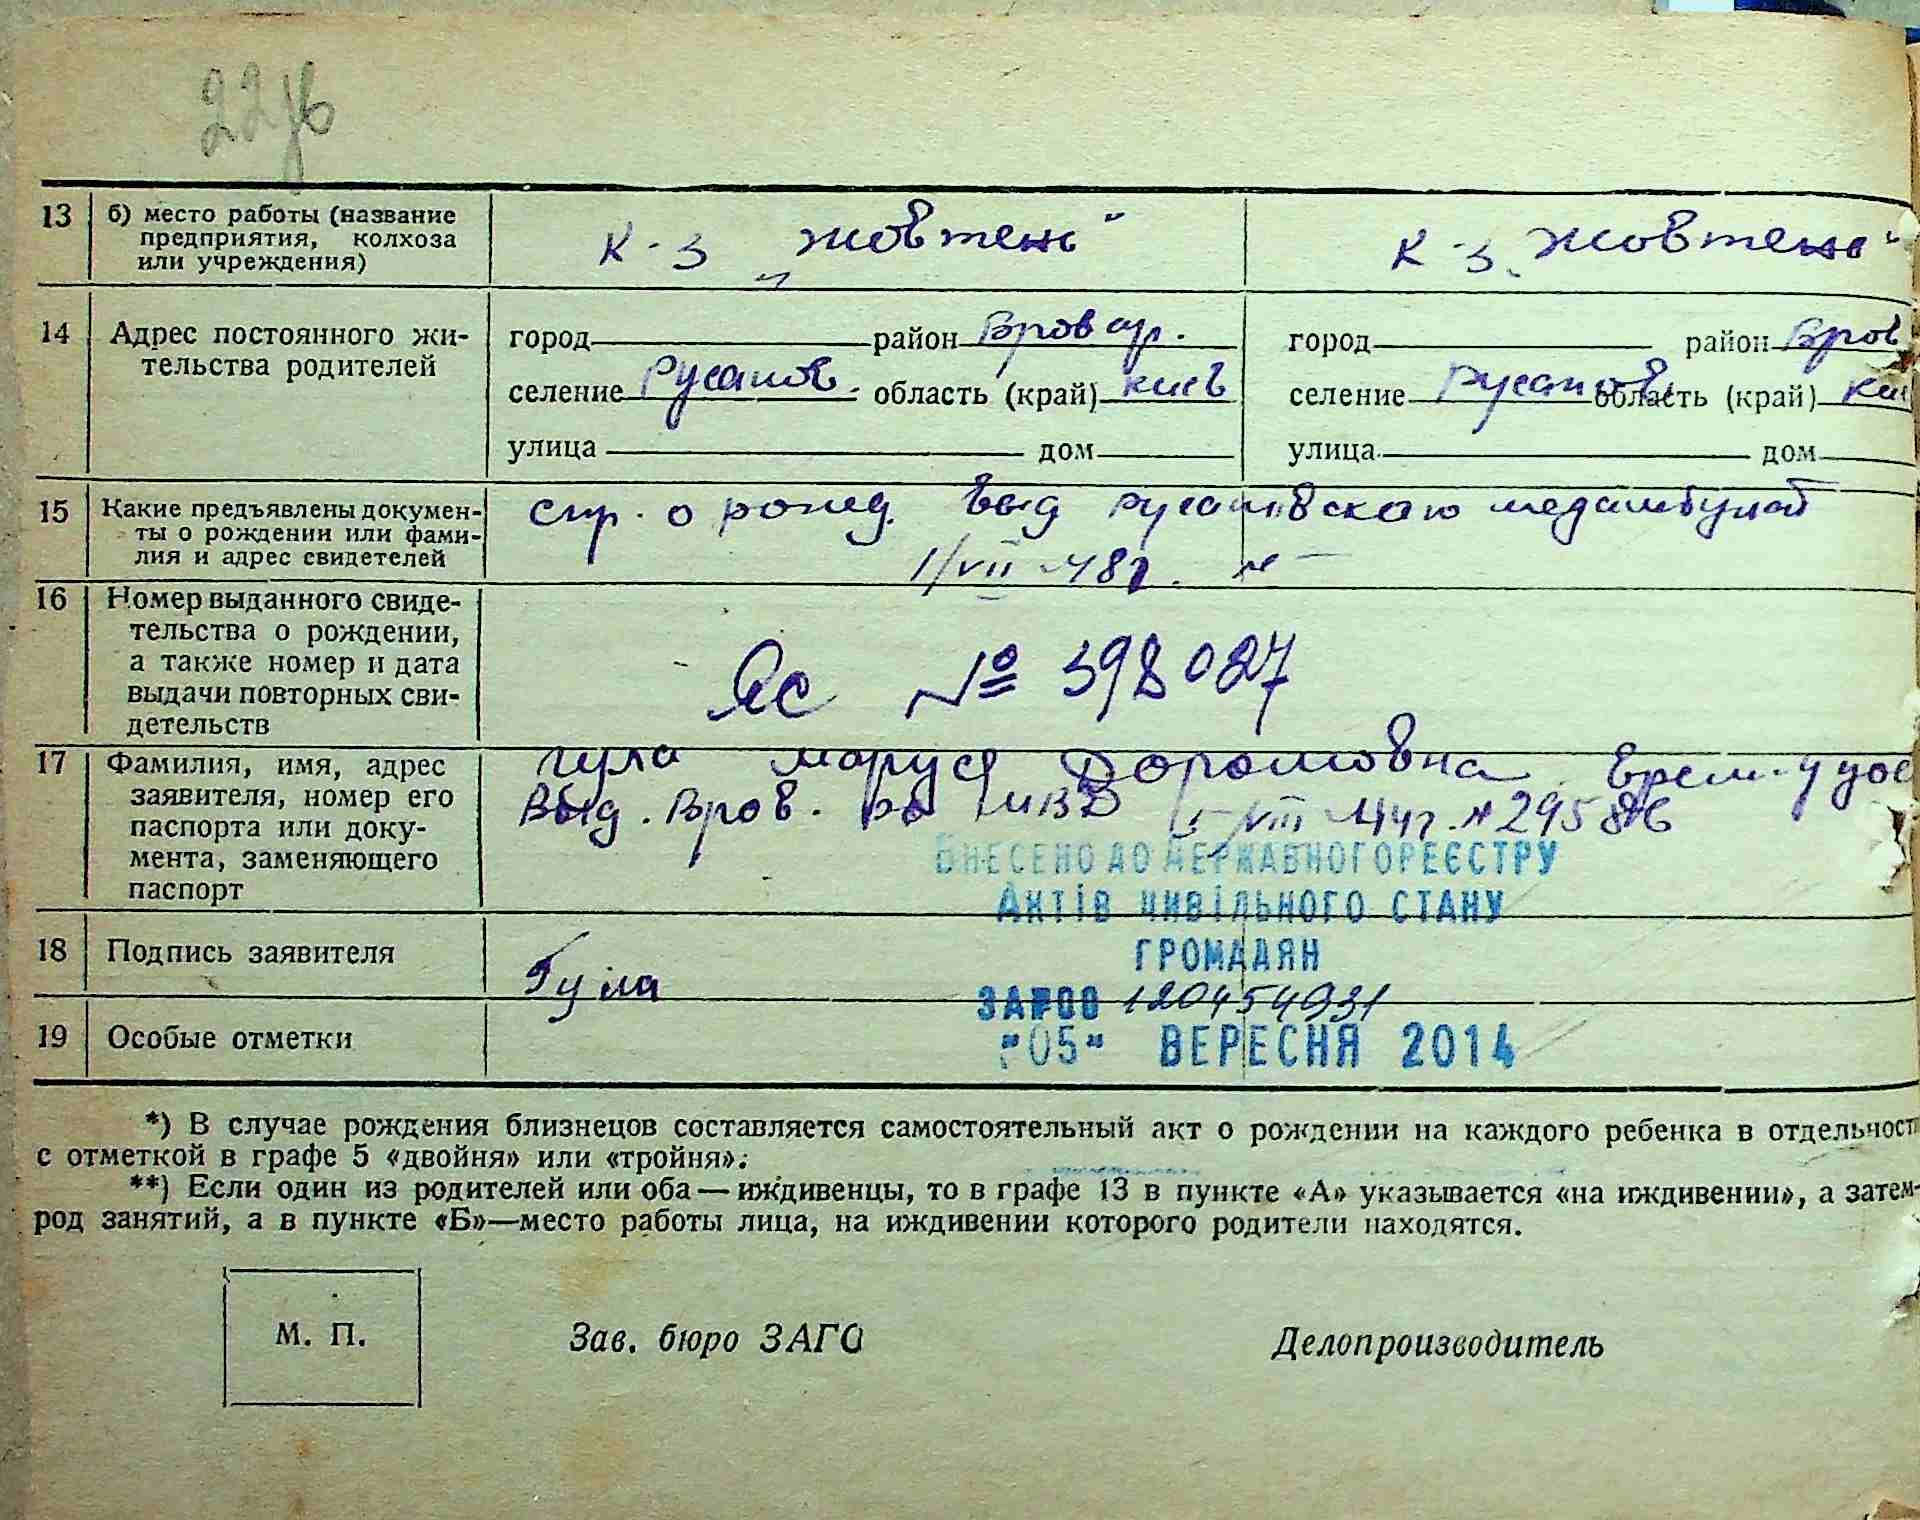 22зв
13 б) место работы (название предприятия, колхоза или учреждения) к-з „Жовтень" к-з „Жовтень"
14 Адрес постоянного жительства родителей
город район Бровар. город район Бров
селение Русанов. область (край) Киев селение Русанов. область (край) Ки
улица дом улица дом
15 Какие предъявлены документы о рождении или фамилия и адрес свидетелей
спр. о рожд. выд Русановскою медамбулат
1/VII-48г. №-
16 Номер выданного свидетельства о рождении, а также номер и дата выдачи повторных свидетельств
ЯС № 398027
17 Фамилия, имя, адрес заявителя, номер его паспорта или документа, заменяющего паспорт
Гула Маруся Врем. удос
Выд. Бров. МВД VIII №
ВНЕСЕНО ДО ДЕРЖАВНОГО РЕЄСТРУ
АКТІВ ЦИВІЛЬНОГО СТАНУ
ГРОМАДЯН
18 Подпись заявителя Гула
ЗА №00 120454931
19 Особые отметки
"05" ВЕРЕСНЯ 2014
*) В случае рождения близнецов составляется самостоятельный акт о рождении на каждого ребенка в отдельност
с отметкой в графе 5 «двойня» или «тройня».
**) Если один из родителей или оба—иждивенцы, то в графе 13 в пункте «А» указывается «на иждивении», а затем-
род занятий, а в пункте «Б»—место работы лица, на иждивении которого родители находятся.
М. П. Зав. бюро ЗАГС Делопроизводитель